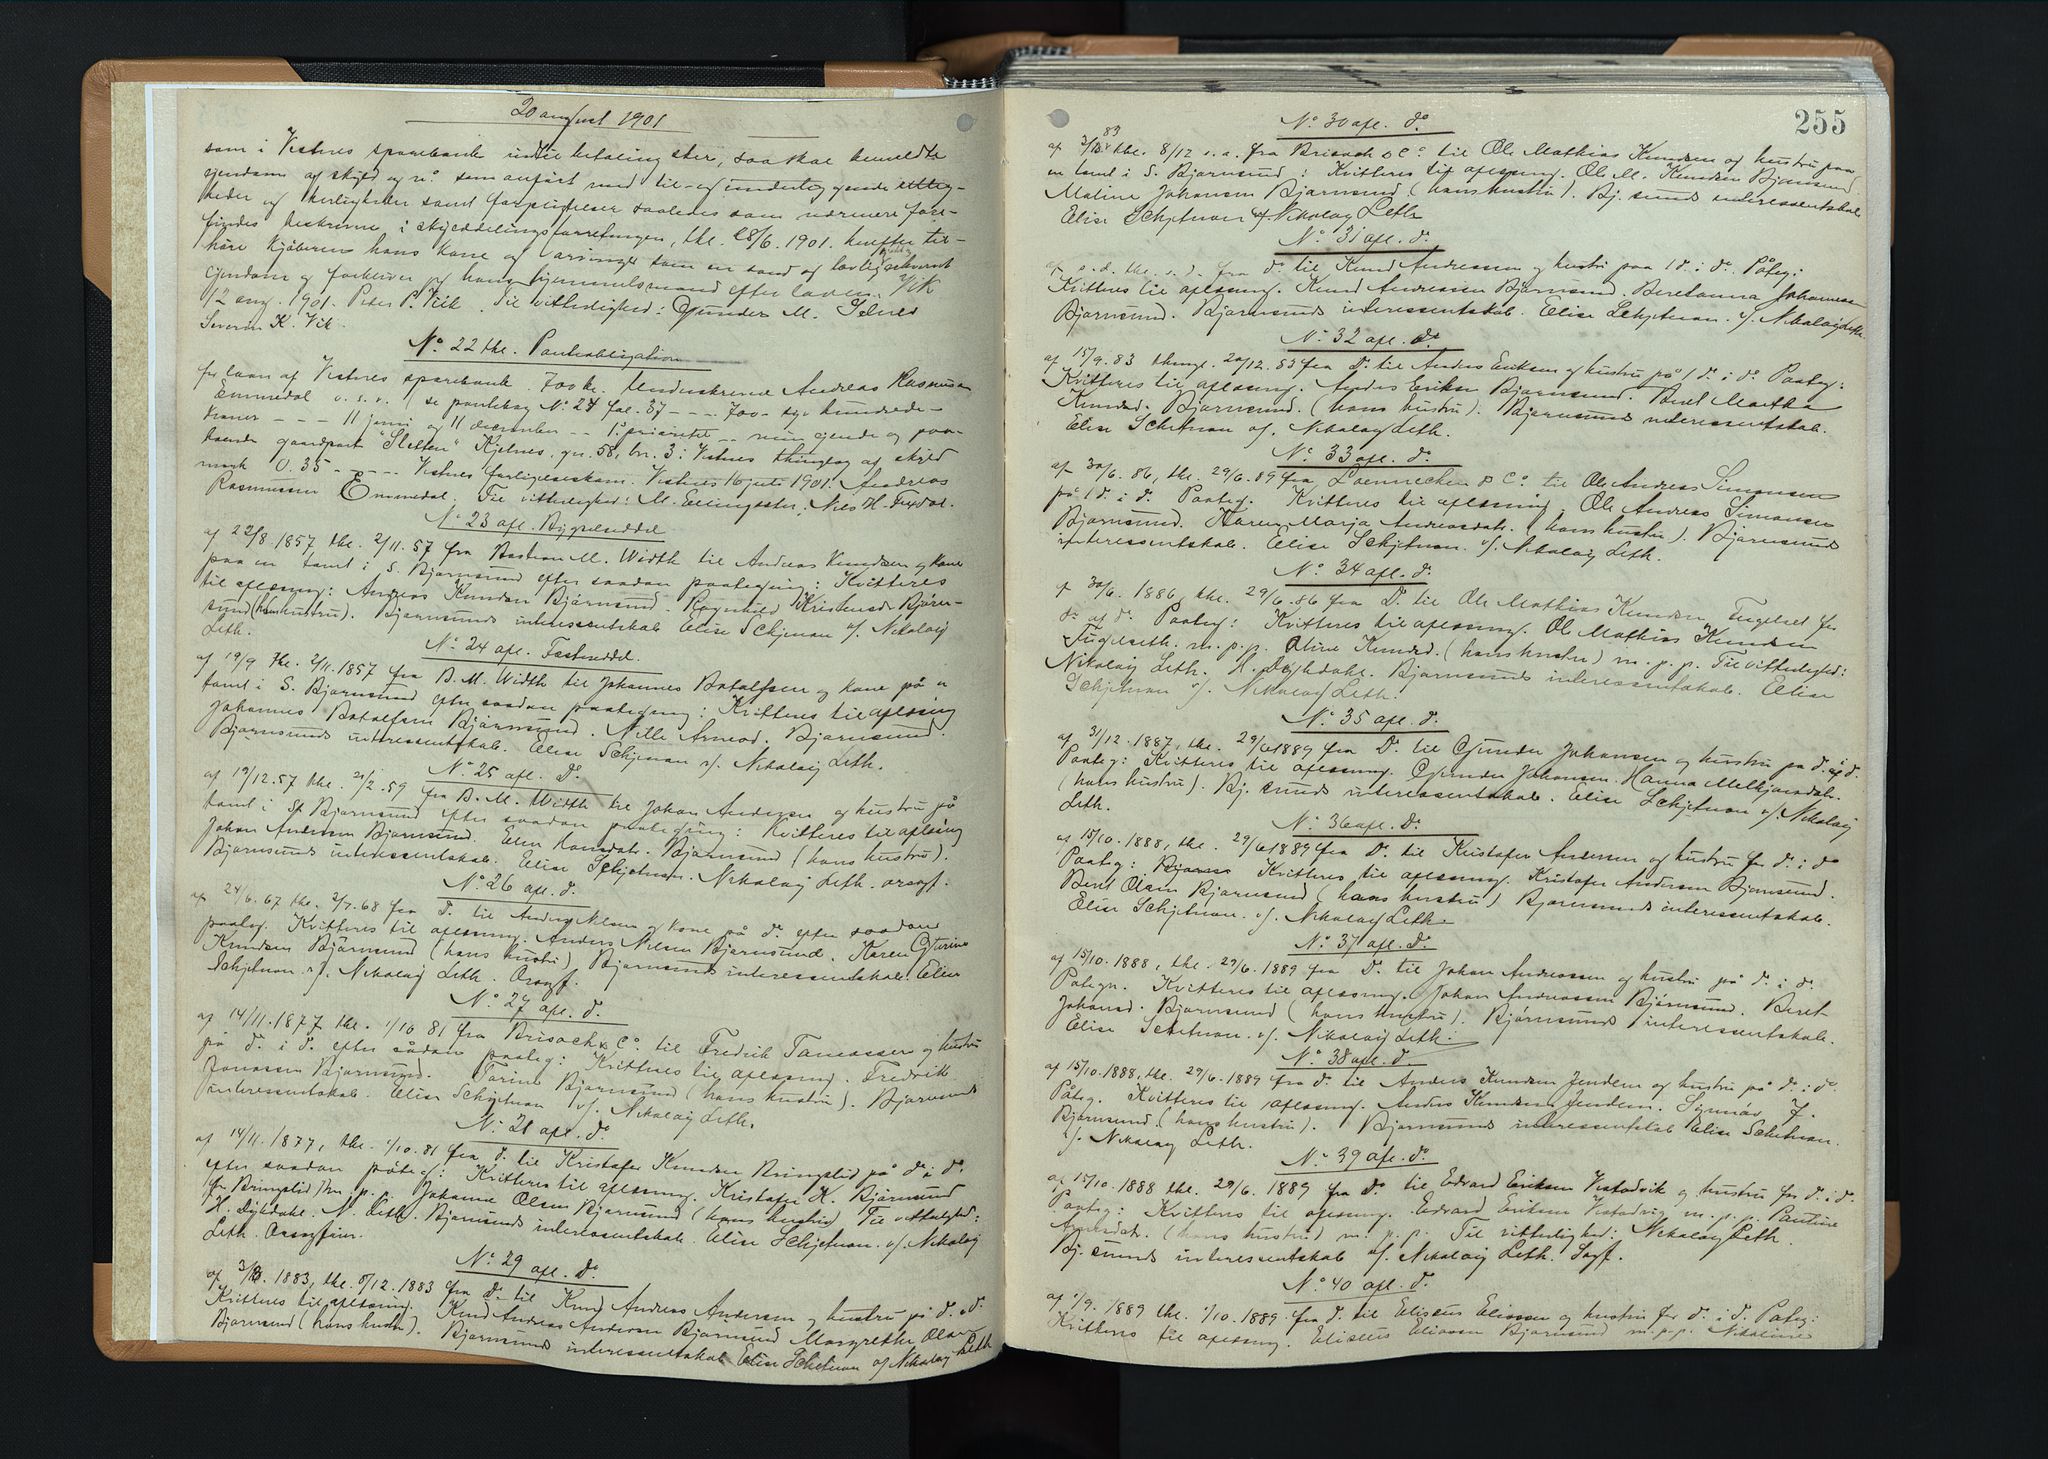 20 august 1901
som i Vestnes sparebank indtil betaling sker, saa skal bemeldte
eiendom af skyld og no. som anført med til- og underliggende
heder og herligheder samt forpligtelser saaledes som nærmere fore-
findes beskrevne i skylddelingsforretningen, thl. 28/6 1901 herefter til-
høre kjøberen hans kone og arvinger som en sand og lovlig erhvervet
eiendom og forbliver jeg hans hjemmelsmand efter loven. Vik
12 aug. 1901. Peter P. Vik. Til vitterlighed: Gunder M. Selnes
Severin K. Vik.
No. 22 thl. Panteobligation
for laan af Vestnes sparebank. 700 kr. Underskrevne Andreas Rasmussen
Emmedal o.s.v. (se pantebog No. 24 fol. 37 - - - 700 - syv hundrede -
kroner - - - 11 juni og 11 december - - 1ste prioritet - - min eiende og paa-
boende gaardpart "Sletten" Kjelnes, gn. 58, bn. 3 i Vestnes thinglag af skyld
mark 0.35 - - - - - Vestnes forligelseskom. Vestnes 16 juli 1901. Andreas
Rasmussen Emmedal. Til vitterlighed: M. Ellingsæter, Nils H.
No. 23 afl. Bygselseddel
af 22/8 1857 thl. 2/11.57 fra Bastian M. Width til Andreas Knudsen og kone
paa en tomt i S. Bjørnsund efter saadan paategning: Kvitteres
til aflæsning: Andreas Knudsen Bjørnsund. Ragnhild Kristensd. Bjørn-
sund (hans hustru). Bjørnsunds interessentskab Elise Schjetnan v/. Nikolaij
Leth.
No. 24 afl. Fæsteseddel
af 19/9 thl. 2/11.1857 fra B. M. Width til Johannes Botolfsen og kone på en
tomt i S. Bjørnsund efter saadan paategning: Kvitteres til aflæsning
Johannes Botolfsen Bjørnsund. Nille Arnesd. Bjørnsund.
Bjørnsunds interessentskab. Elise Schjetnan v/. Nikolaij Leth.
No. 25 afl. Do
af 19/12.57 thl. 21/2.59 fra B. M. Width til Johan Andersen og hustru på
tomt i S. Bjørnsund efter saadan paategning: Kvitteres til aflæsning
Johan Andersen Bjørnsund. Elen Hansdatr. Bjørnsund (hans hustru).
Bjørnsunds interessentskab. Elise Schjetnan. Nikolaij Leth.
No. 26 afl. do
af 24/6.67 thl. 2/7.68 fra D. til Anders Nilsen og kone på do. efter saadan
paateg. Kvitteres til aflæsning. Anders Nilsen Bjørnsund. Karen Gurine
Knudsen Bjørnsund (hans hustru) Bjørnsunds interessentskab. Elise
Schjetnan v/. Nikolaij Leth.
No. 27 afl. do.
af 14/11.1877 thl. 1/10 81 fra Brisach & Co. til Fredrik Jonassen og hustru
på do. i do. efter sådan paateg: Kvitteres til aflæsning. Fredrik
Jonassen Bjørnsund. Bjørnsund (hans hustru). Bjørnsunds
interessentskab. Elise Schjetnan v/. Nikolaij Leth.
No. 28 afl. do
af 14/11.1877, thl. 1/10.81 fra do. til Kristofer Knudsen Bringslid på do. i do.
efter saadan påteg: Kvitteres til aflæsning. Kristofer K. Bjørnsund
før Bringslid) m.p.p. Johanne Olsen Bjørnsund (hans hustru) Til vitterlighed:
H. Dyhdahl. N. Leth. Bjørnsunds interessentskab. Elise Schjetnan. v/. Nikolaij
Leth.
No. 29 afl. Do.
af 3/8. 1883, thl. 8/12.1883 fra do. til Knud Andreas Andersen og hustru på do. i do.
Kvitteres til aflæsning. Knud Andreas Andersen Bjørnsund Margrethe Olsen
Bjørnsund (hans hustru). Bjørnsunds interessentskab Elise Schetnan v/ Nikolaij Leth
255
No. 30 afl. do
83
af thl. 8/12 s.a. fra Brisach & Co. til Ole Mathias Knudsen og hustru paa
en tomt i S. Bjørnsund: Kvitteres til aflæsning. Ole M. Knudsen Bjørnsund.
Maline Johansen Bjørnsund (hans hustru). Bj. sunds interessentskab
Elise Schjetnan v/ Nikolaij Leth
No. 31 afl. do
af s.d. thl. s.d. fra do til Knud Andreassen og hustru paa 1 do. i do. Påteg:
Kvitteres til aflæsning. Knud Andreassen Bjørnsund. Beretanna Johannesen
Bjørnsund. Bjørnsunds interessentskab. Elise Schjetnan. v/. Nikolaij Leth
No. 32 afl. do
af 15/9.83 thingl. 20/12.83 fra D. til Anders Eriksen og hustru på 1 do. i do. Paateg:
Kvitteres til aflæsning. Anders Eriksen Bjørnsund. Beret Martha
Knudsd. Bjørnsund. (hans hustru). Bjørnsunds interessentskab.
Elise Schetnan v/. Nikolaij Leth.
No. 33 afl. do
af 30/6.86, thl. 29/6.89 fra Lønnechen & Co. til Ole Andreas Simonsen
på 1 do. i do. Paateg. Kvitteres til aflæsning. Ole Andreas Simonsen
Bjørnsund. Karen Marja Andreasdatr. (hans hustru). Bjørnsunds
interessentskab. Elise Schjetnan. v/. Nikolaij Leth.
No. 34 afl. do.
af 30/6. 1886, thl. 29/6.86 fra D. til Ole Mathias Knudsen Fugelset for
do. af do. Paateg: Kvitteres til aflæsning. Ole Mathias Knudsen
Fugelseth. m.p.p. Oline Knudsd. (hans hustru) m.p.p. Til vitterlighed:
Nikolaij Leth. H. Dyhdahl. Bjørnsunds interessentskab. Elise
Schjetnan v/. Nikolaij Leth.
No. 35 afl. d.
af 31/12.1887, thl. 29/6 1889 fra D. til Gunder Johansen og hustru på do. i do.
Paateg: Kvitteres til aflæsning. Gunder Johansen. Hanna Melkjørsdatr.
(hans hustru). Bj. sunds interessentskab. Elise Schjetnan v/. Nikolaij
Leth.
No. 36 afl. Do.
af 15/10. 1888, thl. 29/6 1889 fra D. til Kristofer Andersen og hustru for do. i do
Paateg: Kvitteres til aflæsning. Kristofer Andersen Bjørnsund.
Beret Olsen Bjørnsund (hans hustru) Bjørnsunds interessentskab.
Elise Schjetnan. v/. Nikolaij Leth.
No. 37 afl. Do.
af 15/10.1888, thl. 29/6.1889 fra D. til Johan Andreassen og hustru på do. i do.
Påtegn. Kvitteres til aflæsning. Johan Andreassen Bjørnsund. Beret
Johansd. Bjørnsund (hans hustru). Bjørnsunds interessentskab.
Elise Schetnan. v/. Nikolaij Leth.
No. 38 afl. do
af 15/10.1888, thl. 29/6.1889 fra do. til Anders Knudsen Jendem og hustru på do. i do
Påteg. Kvitteres til aflæsning. Anders Knudsen Jendem. Synnøv J.
Bjørnsund (hans hustru). Bjørnsunds interessentskab Elise Schetnan.
v/. Nikolaij Leth.
No. 39 afl. do.
af 15/10.1888 thl. 29/6. 1889 fra Do. til Edvard Eriksen Vestadvik og hustru for do. i do.
Paateg: Kvitteres til aflæsning. Edvard Eriksen Vestadvig m.p.p. Pauline
(hans hustru) m.p.p. Til vitterlighed: Nikolaij Leth.
Bj. sunds interessentskab v/. Nikolaij Leth.
No. 40 afl. do.
af 1/9. 1889 thl. 1/10.1889 fra do. til Eliseus Eliassen og hustru for do. i do. Påteg:
Kvitteres til aflæsning. Eliseus Eliassen Bjørnsund m.p.p. Nikoline